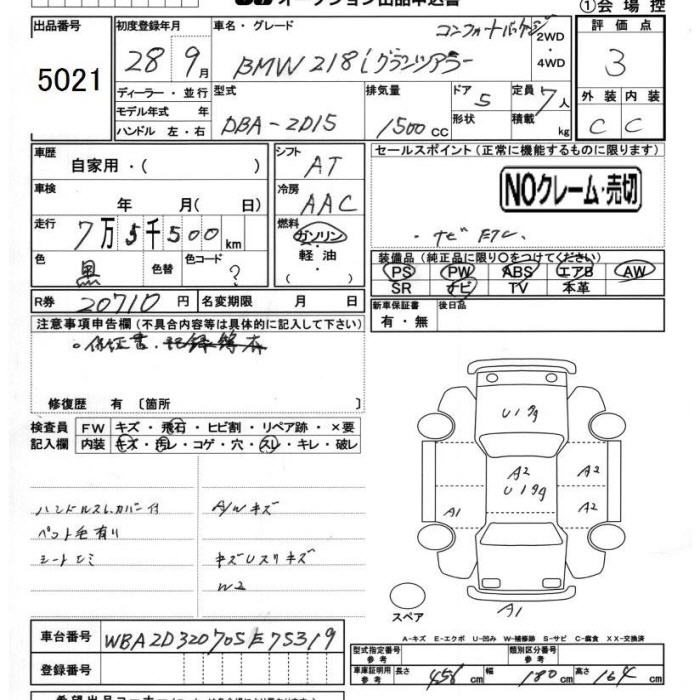 オークション出品申込書
①会場控
出品番号 初度登録年月 車名・グレード コンフォートパッケージ 2WD・4WD 評価点
5021 28 9月 BMW 218i グランツアラー 3
ディーラー・並行 型式 排気量 ドア 5 定員 7人 外装 内装
モデル年式 年 形状 積載 kg
ハンドル 左・右 DBA-2D15 1500cc C C
車歴 自家用・( ) シフト AT セールスポイント(正常に機能するものに限ります)
車検 年 月( 日) 冷房 AAC NOクレーム・売切
走行 7万5千500km 燃料 ガソリン・軽油・ ・ナビ ETC.
色 黒 色替 色コード ? 装備品(純正品に限り○をつけてください)
PS PW ABS エアB AW
SR ナビ TV 本革
R券 20710円 名変期限 月 日 新車保証書 有・無 後日品
注意事項申告欄(不具合内容等は具体的に記入して下さい)
。保証書・記録簿有
修復歴 有 〔箇所 〕
検査員 FW キズ・飛石・ヒビ割・リペア跡・×要
記入欄 内装 キズ・汚レ・コゲ・穴・スレ・キレ・破レ
U1キg
A2 A2
U1キg
A1 A2
ハンドルスレカバー付 A/Wキズ
ペット毛有り
シートシミ キズUスリキズ
W2
スペア
A1
A-キズ E-エクボ U-凹み W-補修跡 S-サビ C-腐食 XX-交換済
車台番号 WBA2D320705E75319
型式指定番号 参考 類別区分番号 参考
登録番号 車庫証明用 参考 長さ 456cm 幅 180cm 高さ 164cm